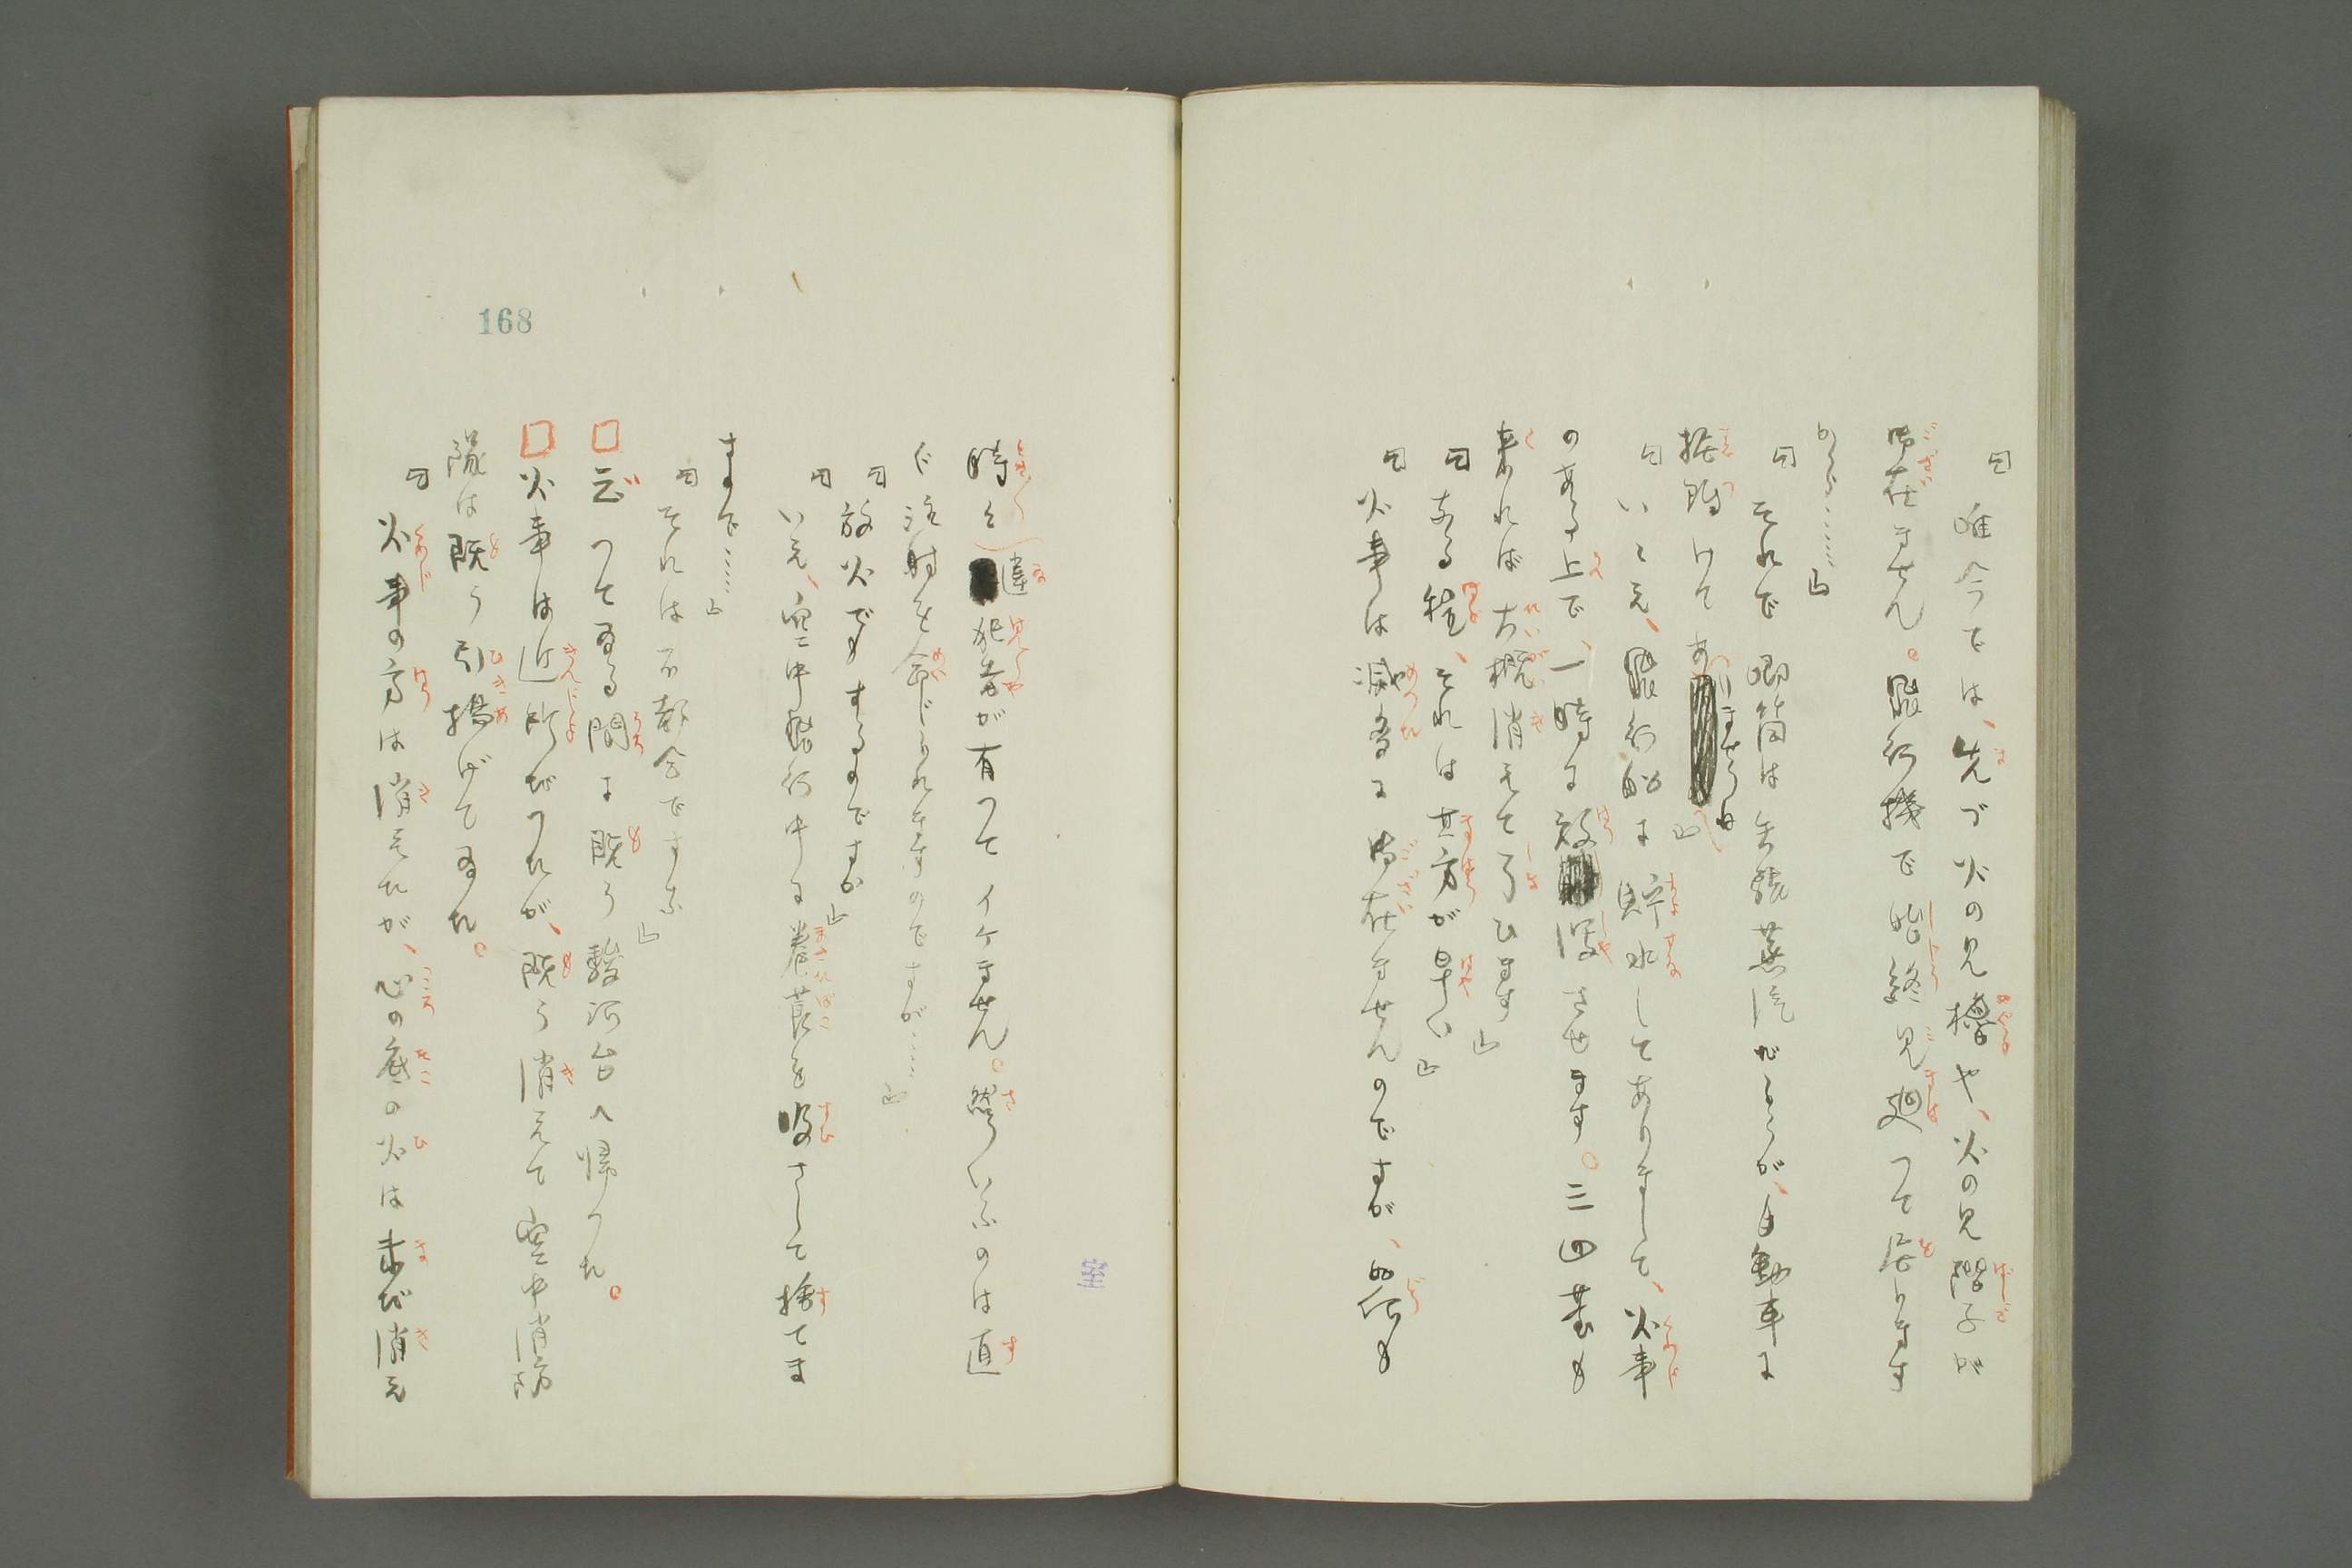 「唯今では、先づ火の見櫓や、火の見階子が
御在ません。飛行機で始終見廻つて居ります
から……」
「それで喞筒は矢張蒸汽だらうが、自動車に
据附けてありますか」
「いゝえ、飛行船に貯水してありまして、火事
のある上で、一時に放瀉させます。三四基も
来れば大概消えて了ひます」
「ある程、それは其方が早い」
「火事は滅多に御在ませんのですが、如何も
時々違犯者が有つてイケません。然ういふのは直
ぐ注射を命じられますのですが……」
「放火でもするのですか」
「いえ、空中飛行中に巻莨を吸さして捨てま
すので……」
「それは不都合ですな」
云つてゐる間に既う駿河台へ帰つた。
火事は近所だつたが、既う消えて空中消防
隊は既う引揚げてゐた。
「火事の方は消えたが、心の底の火は未だ消え
168